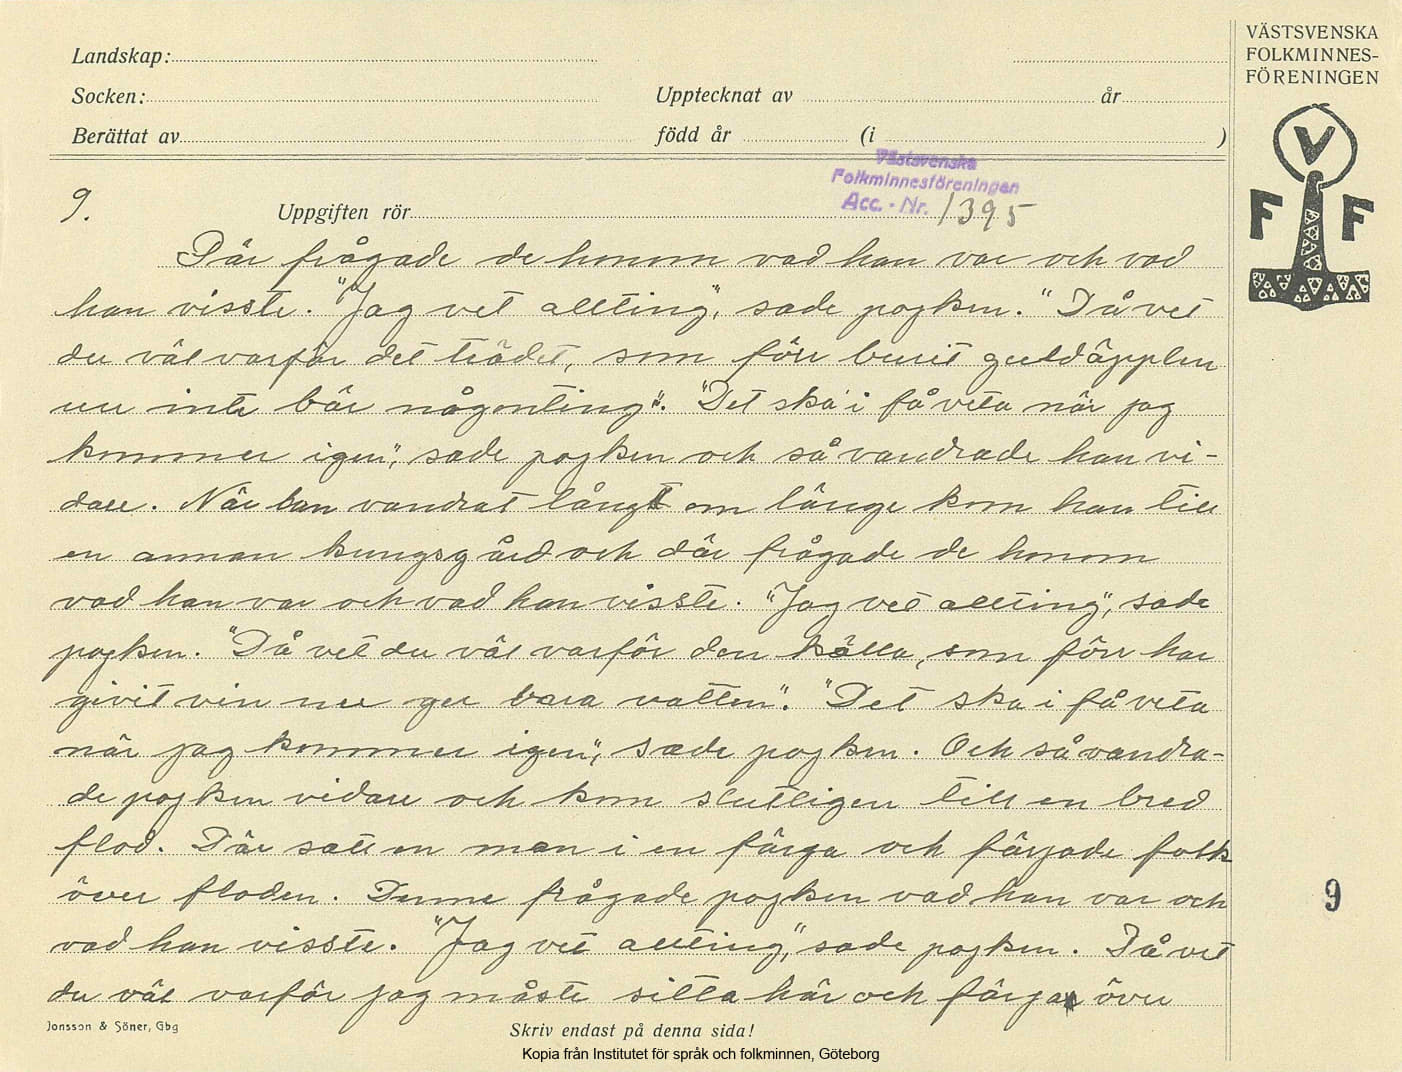 Landskap:
Socken:
Upptecknat av
år
Berättat av
född år
(i
)
VÄSTSVENSKA
FOLKMINNES-
FÖRENINGEN
V
F F
Västsvenska
Folkminnesföreningen
Acc. - Nr. 1395
9.
Uppgiften rör
Där frågade de honom vad han var och vad
han visste. "Jag vet allting", sade pojken. "Då vet
du väl varför det trädet, som förr burit guldäpplen
nu inte bär någonting". "Det ska i få veta när jag
kommer igen", sade pojken och så vandrade han vi-
dare. När han vandrat långt om länge kom han till
en annan kungsgård och där frågade de honom
vad han var och vad han visste. "Jag vet allting", sade
pojken. "Då vet du väl varför den källa, som förr har
givit vin nu ger bara vatten". "Det ska i få veta
när jag kommer igen", sade pojken. Och så vandra-
de pojken vidare och kom slutligen till en bred
flod. Där satt en man i en färga och färjade folk
över floden. Denne frågade pojken vad han var och
vad han visste. "Jag vet allting," sade pojken. Då vet
du väl varför jag måste sitta här och färja över
9
Jonsson & Söner, Gbg
Skriv endast på denna sida!
Kopia från Institutet för språk och folkminnen, Göteborg